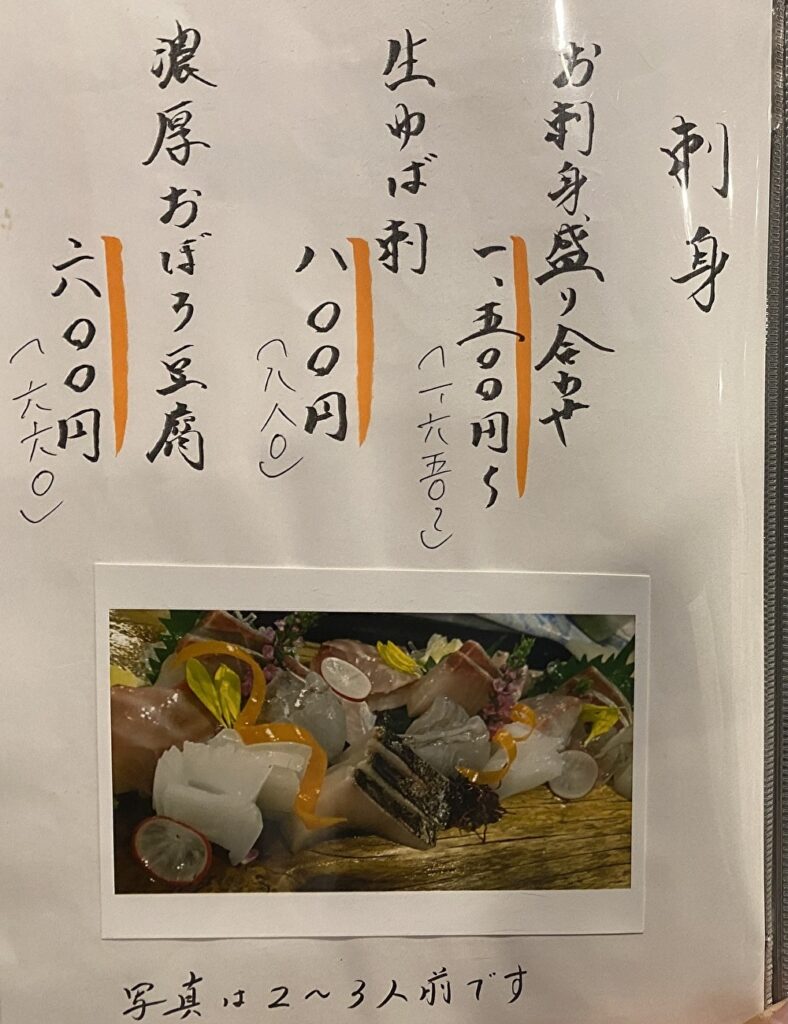 刺身
お刺身盛り合わせ
一、五〇〇円〜
(一六五〇〜)
生ゆば刺
八〇〇円
(八八〇)
濃厚おぼろ豆腐
六〇〇円
(六六〇)
写真は2〜3人前です